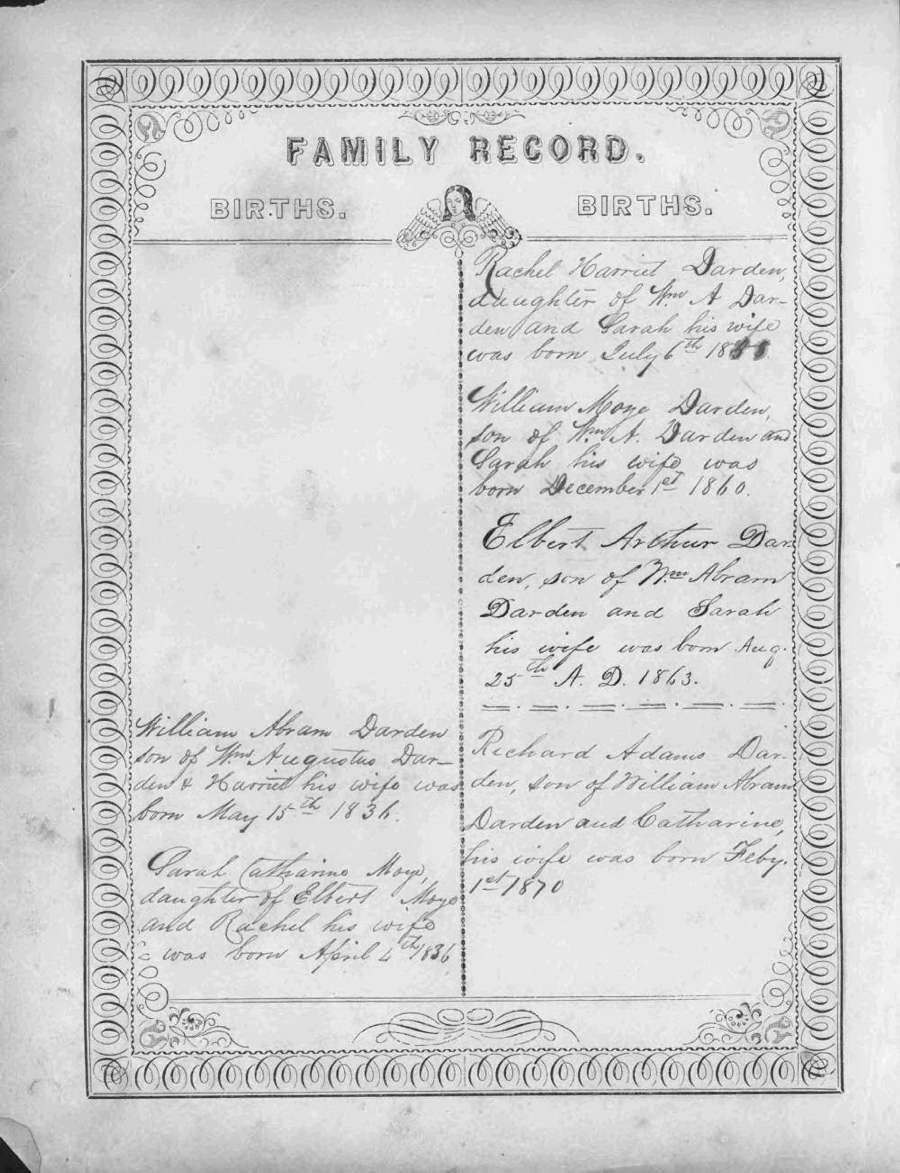 FAMILY RECORD.
BIRTHS.
William Abram Darden
son of Wm Augustus Dar-
den & Harriet his wife was
born May 15th 1836.
Sarah Catharine Moye,
daughter of Elbert Moye
and Rachel his wife
was born April 4th 1836
BIRTHS.
Rachel Harriet Darden,
daughter of Wm A Dar-
den and Sarah his wife
was born July 6th
William Moye Darden,
son of Wm A. Darden and
Sarah his wife was
born December 1st 1860.
Elbert Arthur Dar
den, son of Wm Abram
Darden and Sarah
his wife was born Aug.
25th A. D. 1863.
Richard Adams Dar-
den, son of William Abram
Darden and Catharine,
his wife was born Feby.
1st 1870